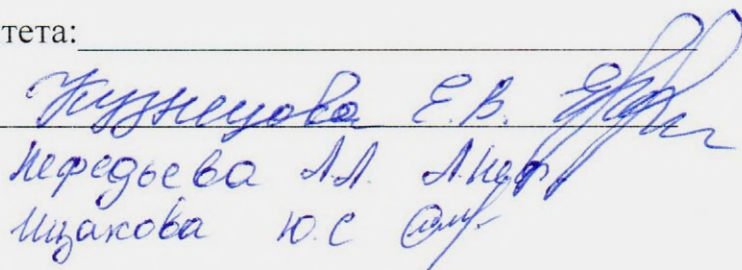 тета:
Кузнецова Е.В.
Нефедьева А.А. А.Неф
Ицакова Ю.С